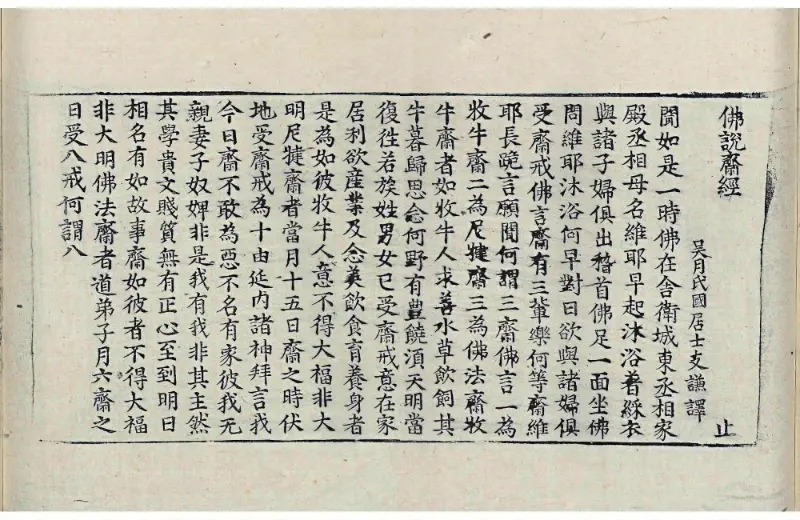 佛說齋經
吳月氏國居士支謙譯　止
聞如是一時佛在舍衛城東丞相家
殿丞相母名維耶早起沐浴着綵衣
與諸子婦俱出稽首佛足一面坐佛
問維耶沐浴何早對曰欲與諸婦俱
受齋戒佛言齋有三輩樂何等齋維
耶長跪言願聞何謂三齋佛言一為
牧牛齋二為尼揵齋三為佛法齋牧
牛齋者如牧牛人求善水草飲飼其
牛暮歸思念何野有豊饒湏天明當
復徃若族姓男女已受齋戒意在家
居利欲産業及念美飲食育養身者
是為如彼牧牛人意不得大福非大
明尼揵齋者當月十五日齋之時伏
地受齋戒為十由延内諸神拜言我
今日齋不敢為惡不名有家彼我无
親妻子奴婢非是我有我非其主然
其學貴文賤質無有正心至到明日
相名有如故事齋如彼者不得大福
非大明佛法齋者道弟子月六齋之
日受八戒何謂八